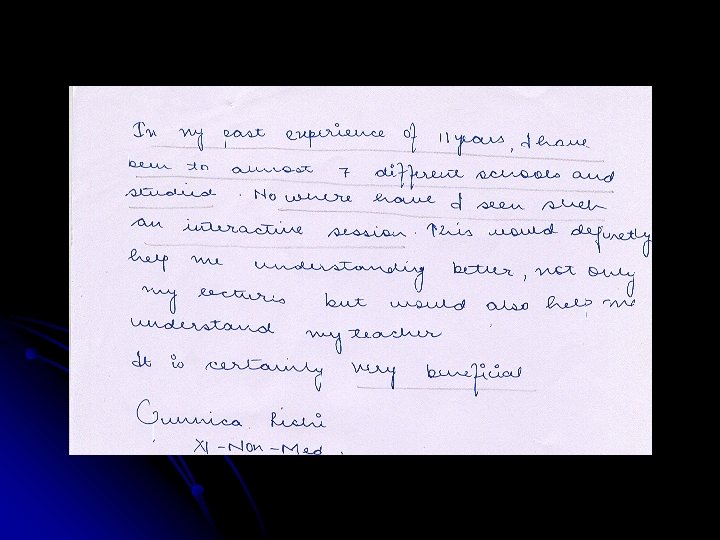 In my past experience of 11 years, I have
been to almost 7 different schools and
studied. No where have I seen such
an interactive session. This would definetly
help me understanding better, not only
my lectures but would also help me
understand my teacher
It is certainly very beneficial
XI-Non-Med.